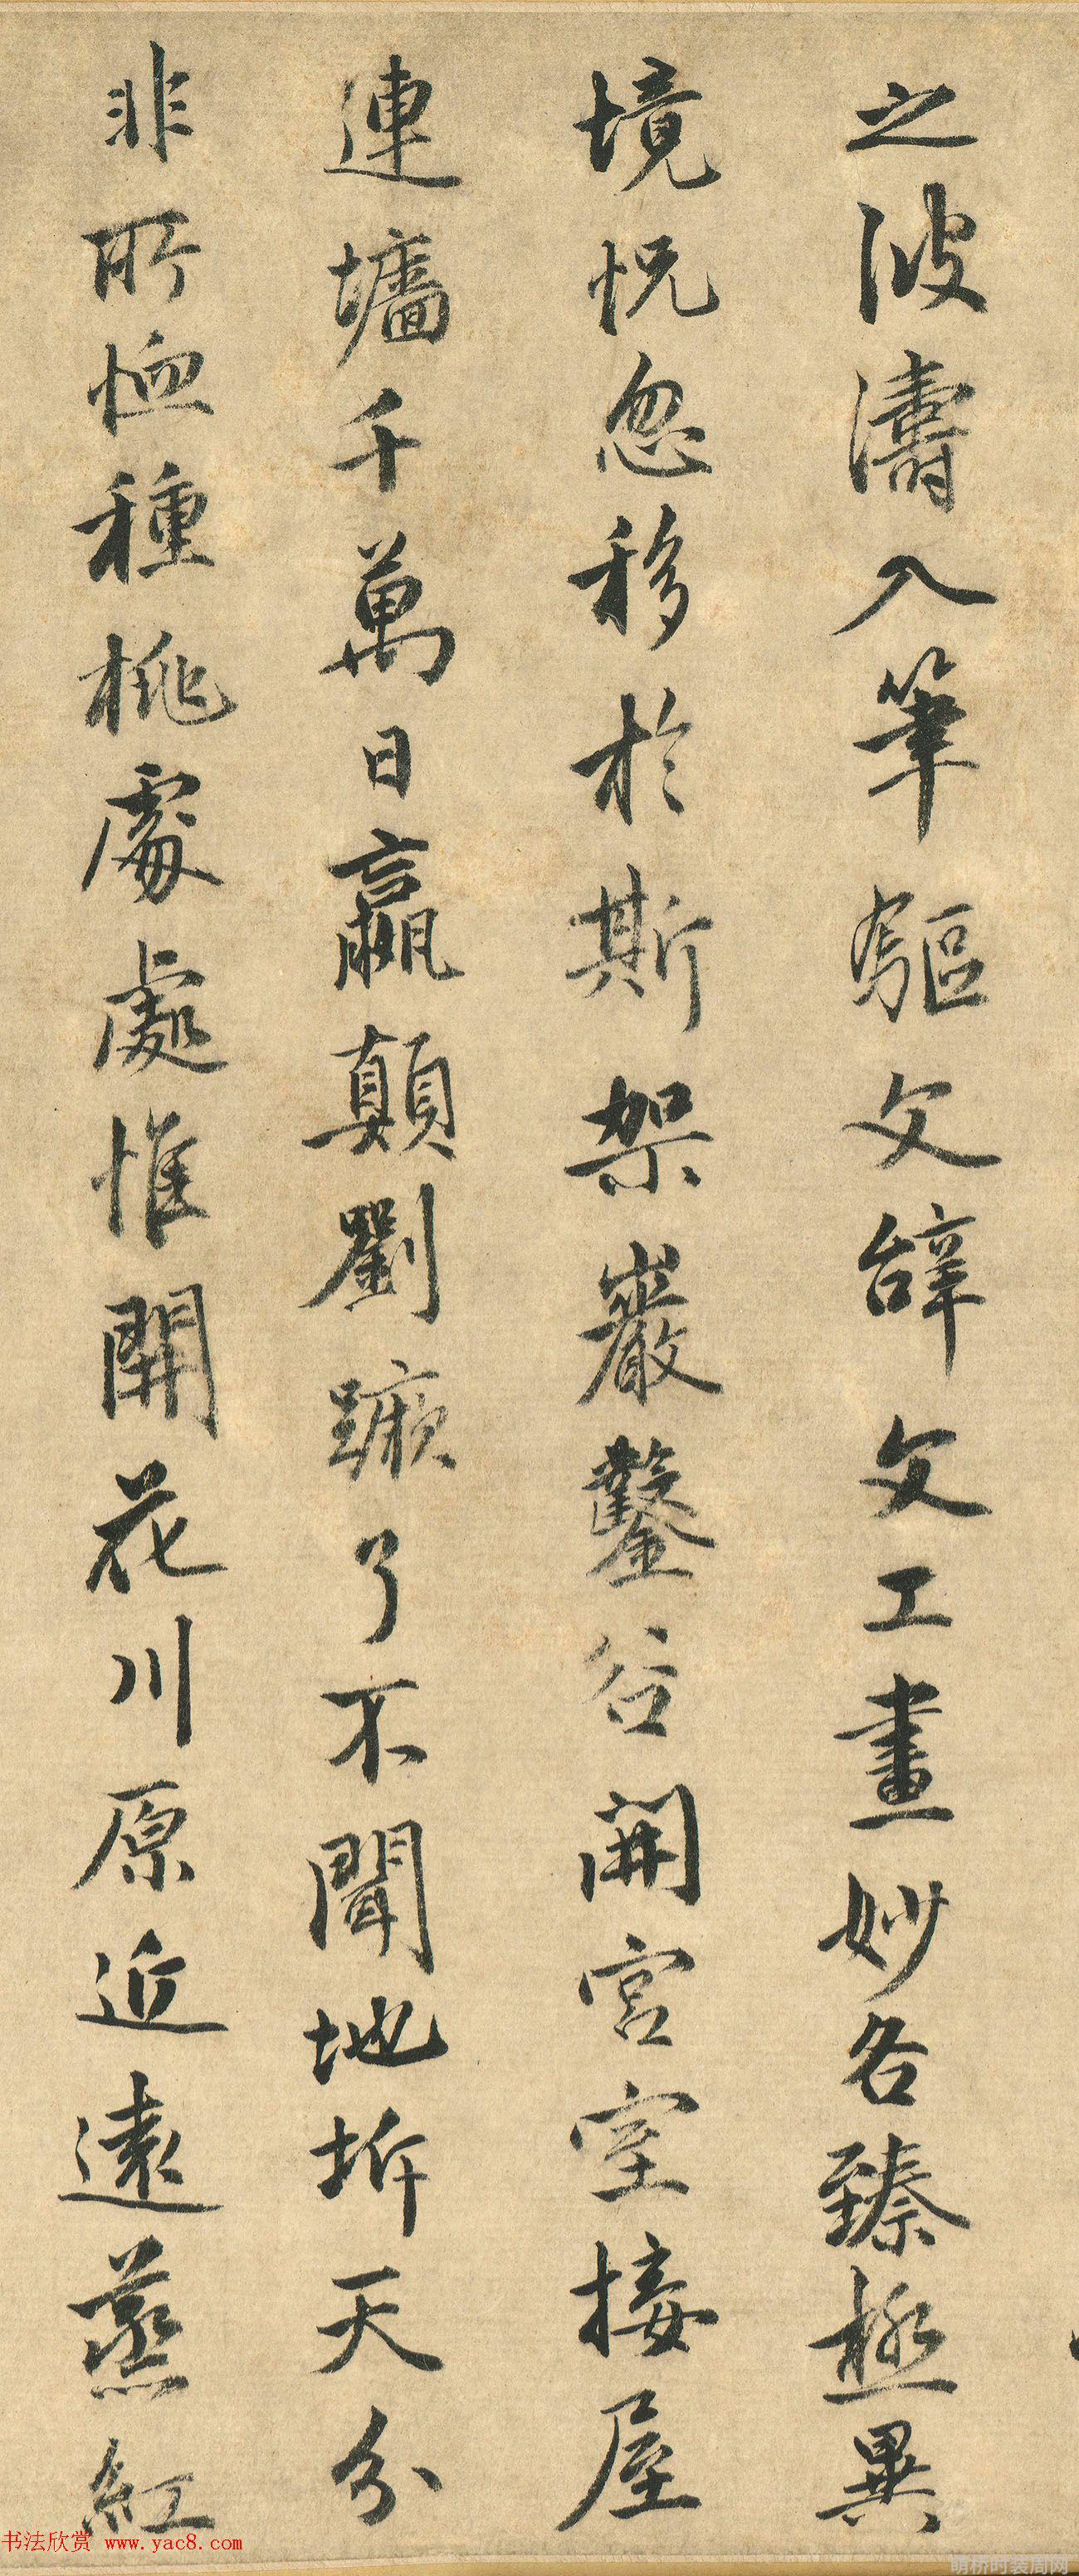 之波濤入筆驅文辞文工畫妙各臻極異
境怳忽移於斯架巖鑿谷開宮室接屋
連墻千萬日嬴顛劉蹶了不聞地坼天分
非所恤種桃處處惟開花川原近遠蒸紅
书法欣赏 www.yac8.com
萌桥时装周网